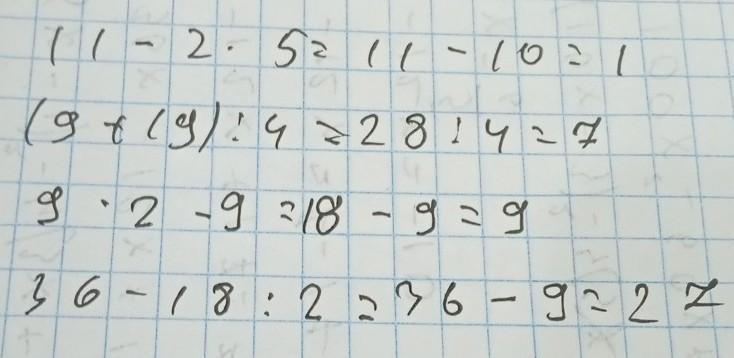 11 - 2 · 5 = 11 - 10 = 1
(9 + 19) : 4 = 28 : 4 = 7
9 · 2 - 9 = 18 - 9 = 9
36 - 18 : 2 = 36 - 9 = 27